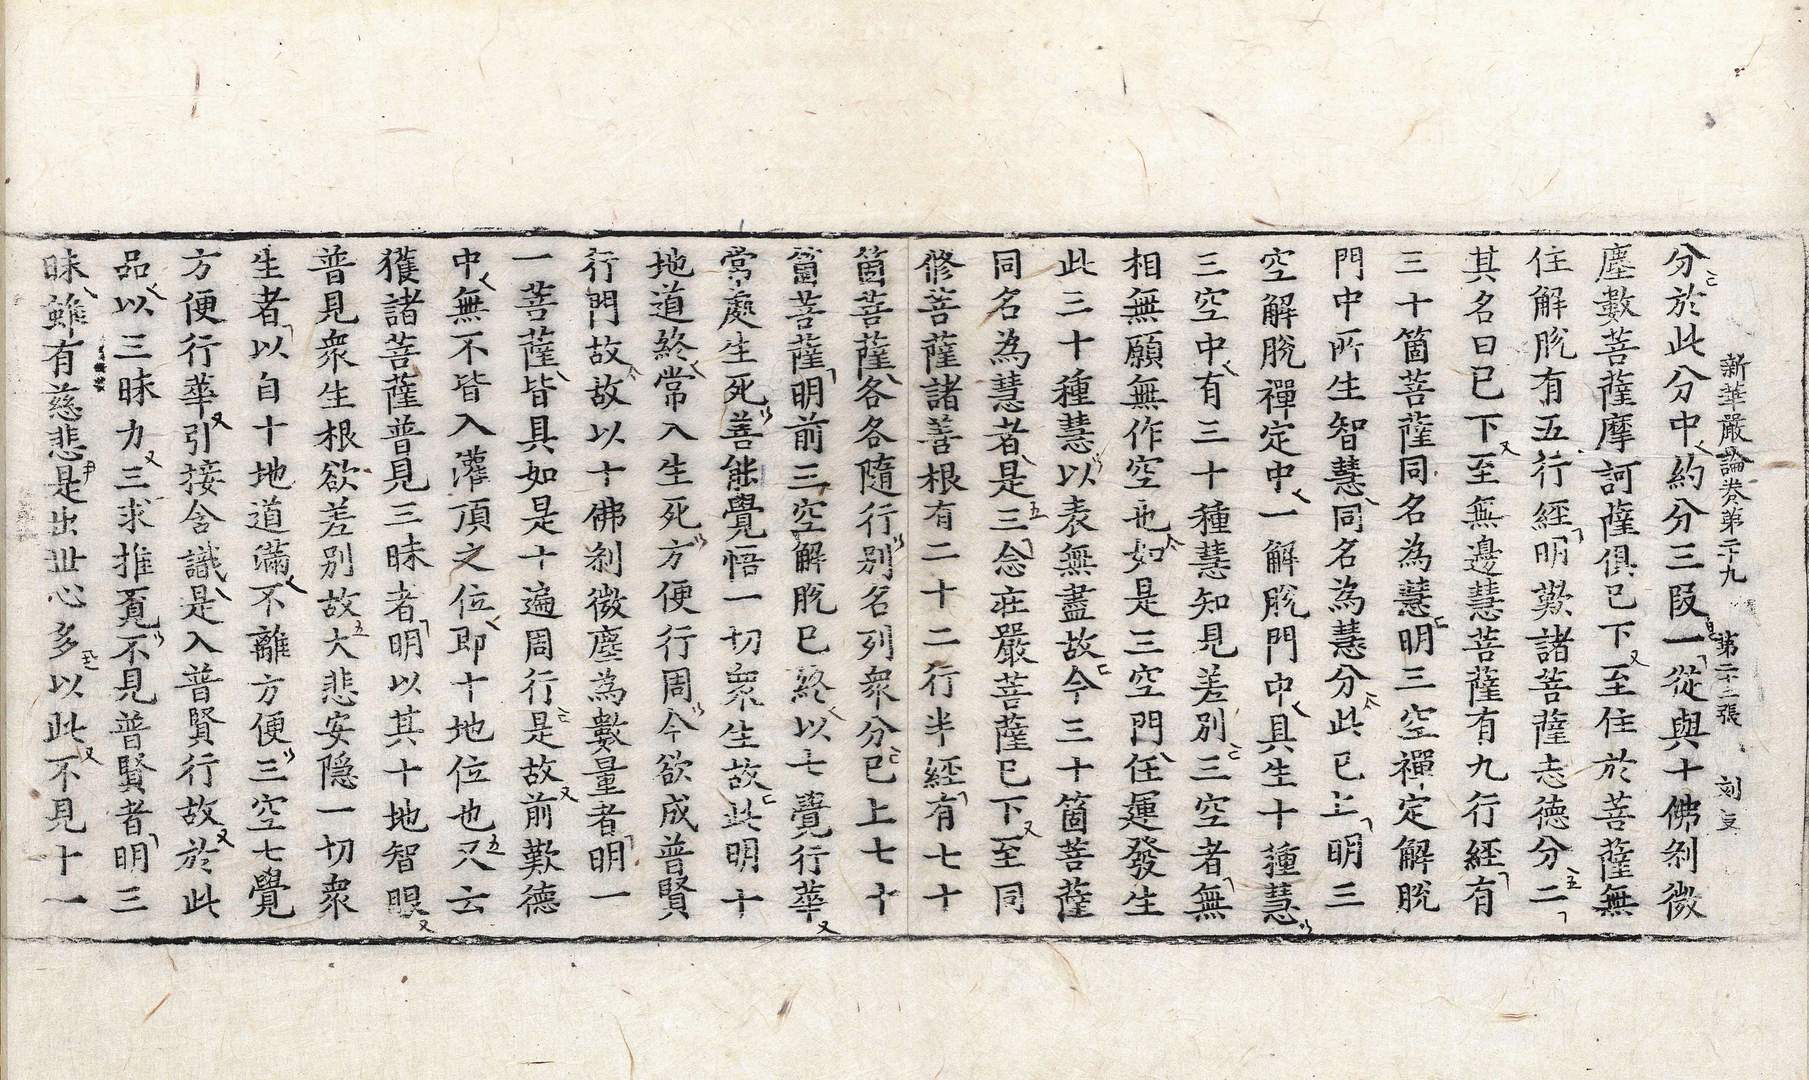 新華嚴論卷第二十九 第二十三張 刻
分於此分中約分三段一從與十佛刹微
塵數菩薩摩訶薩俱已下至住於菩薩無
住解脫有五行經明歎諸菩薩志德分二
其名曰已下至無邊慧菩薩有九行經有
三十箇菩薩同名為慧明三空禪定解脫
門中所生智慧同名為慧分此已上明三
空解脫禪定中一解脫門中具生十種慧
三空中有三十種慧知見差別三空者無
相無願無作空也如是三空門任運發生
此三十種慧以表無盡故今三十箇菩薩
同名為慧者是三念莊嚴菩薩已下至同
修菩薩諸善根有二十二行半經有七十
箇菩薩各各隨行別名列衆分已上七十
箇菩薩明前三空解脫已終以七覺行華
常處生死善能覺悟一切衆生故此明十
地道終常入生死方便行周今欲成普賢
行門故故以十佛刹微塵為數量者明一
一菩薩皆具如是十遍周行是故前歎德
中無不皆入灌頂之位即十地位也又云
獲諸菩薩普見三昧者明以其十地智眼
普見衆生根欲差別故大悲安隱一切衆
生者以自十地道滿不離方便三空七覺
方便行華引接含識是入普賢行故於此
品以三昧力三求推覓不見普賢者明三
昧雖有慈悲是出世心多以此不見十一